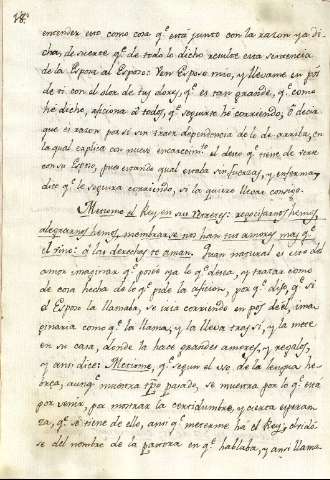 18.
entender esto como cosa q.e está junto con la razon ya di-
cha, de suerte q.e de todo lo dicho resulte esta sentencia
de la Esposa al Esposo: Ven Esposo mio, y llevame en pos
de ti con el olor de tus olores, q.e es tan grande, q.e como
he dicho, aficiona á todos, q.e seguirte hé corriendo, ó decir
que es razon por si sin traer dependencia de lo de arriba, en
la qual explica con nuevo encarecim.to el deseo q.e tiene de verse
con su Esposo, pues estando qual estaba sin fuerzas, y enferma,
dice q.e le seguirá corriendo, si la quiere llevar consigo.
Metiome el Rey en sus retretes: regocijarnos hemos,
alegrarnos hemos, membrarse nos han tus amores mas q.e
el vino: á las derechas te aman. Quan natural es esto del
amor imaginar q.e posée ya lo q.e desea, y tratar como
de cosa hecha de lo q.e pide la aficion, por q.e dijo, q.e si
el Esposo la llamaba, se iria corriendo en pos de él, ima-
ginaria como q.e la llama, y la lleva tras si, y la mete
en su casa, donde la hace grandes amores, y regalos,
y ansi dice: Metiome, q.e segun el uso de la lengua he-
brea, aunq.e muestra tpo pasado, se muestra por lo q.e está
por venir, por mostrar la certidumbre, y cierta esperan-
za, q.e se tiene de ello, ansi q.e meterme há el Rey, y olvidó-
se del nombre de la pastora en q.e hablaba, y ansi llama